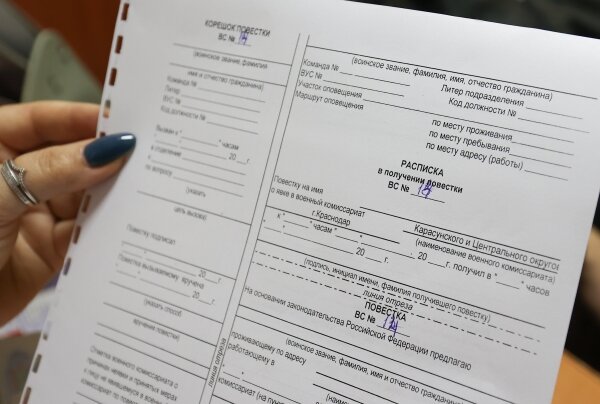 КОРЕШОК ПОВЕСТКИ
ВС №
(воинское звание, фамилия
имя и отчество гражданина)
Команда №
Литер
ВУС №
Код должности №
Вызван к " " часам
" " 20 г.
в отделение
по вопросу
(указать
цель вызова)
Повестку подписал
" " 20 г.
Повестка вызываемому вручена
" " 20 г.
(указать способ
вручения повестки)
Отметка военного комиссариата о
причинах неявки и принятых мерах
к лицу не явившемуся в военный
линия отреза
(воинское звание, фамилия, имя, отчество гражданина)
Команда №
ВУС №
Участок оповещения
Маршрут оповещения
Литер подразделения
Код должности №
по месту проживания
по месту пребывания
по месту адресу (работы)
РАСПИСКА
в получении повестки
ВС №
Повестку на имя
о явке в военный комиссариат
Карасунского и Центрального округов
г.Краснодар
(наименование военного комиссариата)
к " " часам " " 20 г.
" " 20 г. получил в " " часов
(подпись, инициал имени, фамилия получившего повестку)
линия отреза
ПОВЕСТКА
ВС №
На основании законодательства Российской Федерации предлагаю
(воинское звание, фамилия, имя и отчество гражданина)
проживающему по адресу
работающему в